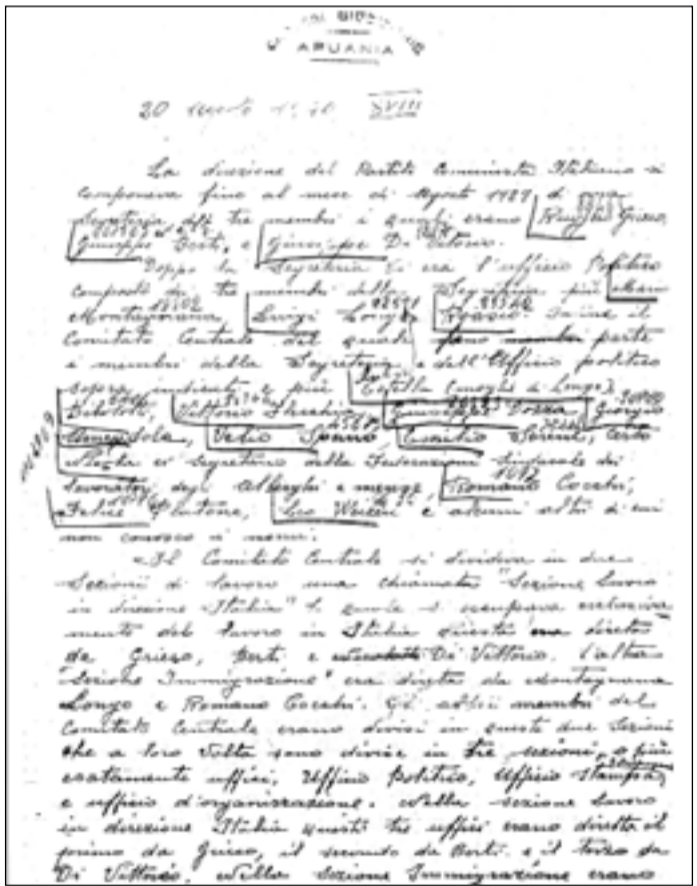 APUANIA
20 agosto 1940 XVIII
La direzione del Partito Comunista Italiano si
componeva fino al mese di Agosto 1939 di una
Segreteria di tre membri i quali erano Ruggero Grieco,
Giuseppe Berti, e Giuseppe Di Vitorio.
Doppo la Segreteria vi era l'uffico Politico
composto di tre membri della Segreteria più
Montagnana, Luigi Longo, Infine il
Comitato Centrale del quale parte
i membri della Segreteria e dell'Ufficio politico
sopra indicati e più Estella (moglie di Longo),
Bibolotti, Vittorio Giuseppe Dozza, Giorgio
Amendola, Velio Spano, Emilio Sereni, certo
segretario della Federazione Sindacale dei
lavoratori degli Alberghi e mense, Romano Cocchi,
Felice Platone, Leo Weiczen e alcuni altri di cui
non conosco i nomi.
Il Comitato Centrale si divideva in due
Sezioni di lavoro una chiamata "Sezione Lavoro
in direzione Italia" la quale si occupava esclusiva
mente del lavoro in Italia diretta
da Grieco, Berti e Di Vittorio. L'altra
"Sezione Immigrazione" era diretta da Montagnana
Longo e Romano Cocchi. Gli altri membri del
Comitato Centrale erano divisi in queste due Sezioni
che a loro Volta sono divise in tre sezioni, o più
esatamente uffici, Ufficio Politico, Ufficio Stampa
e ufficio d'organizzazione. Nella sezione Lavoro
in direzione Italia questi tre uffici erano diretti il
primo da Grieco, il secondo da Berti e il terzo da
Di Vittorio. Nella Sezione Immigrazione erano